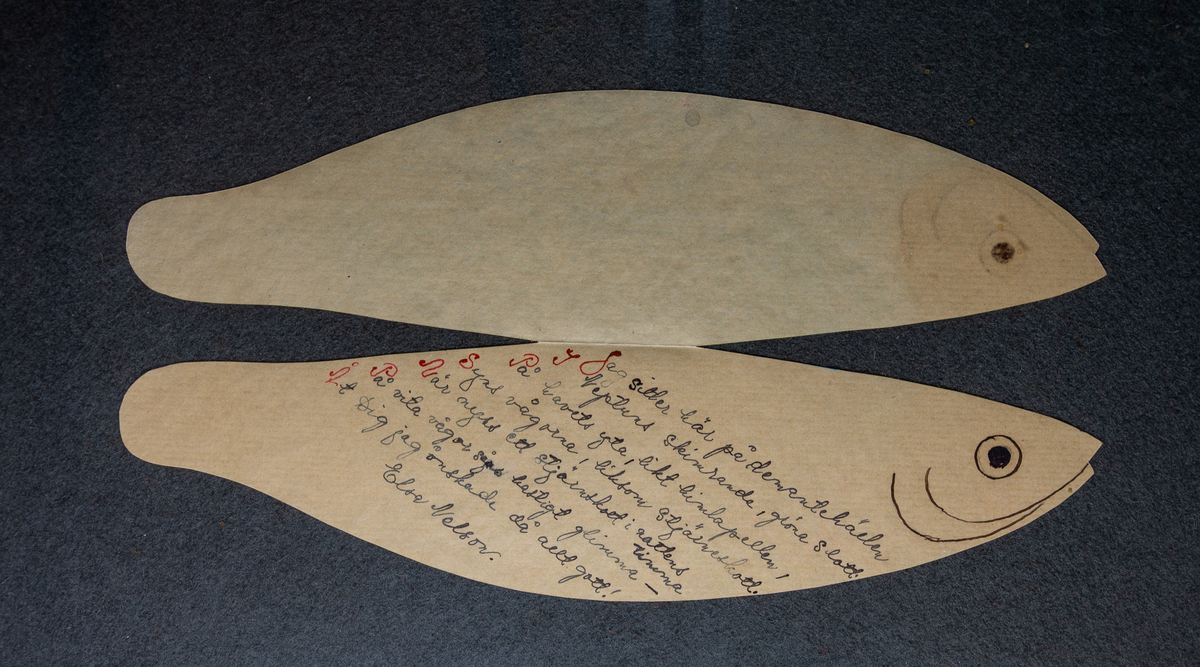 Jag sitter här på demantehällen
I Neptuns skinranda, gröna slott.
På havets yta, likt himlapellen!
Syns vågorna, liksom stjärneskott.
När nyss ett stjärnskott i nattens timma
På vita vågor sågs hastigt glimma —
Åt Dig jag önskade då allt gott!
Elsa Nelson.